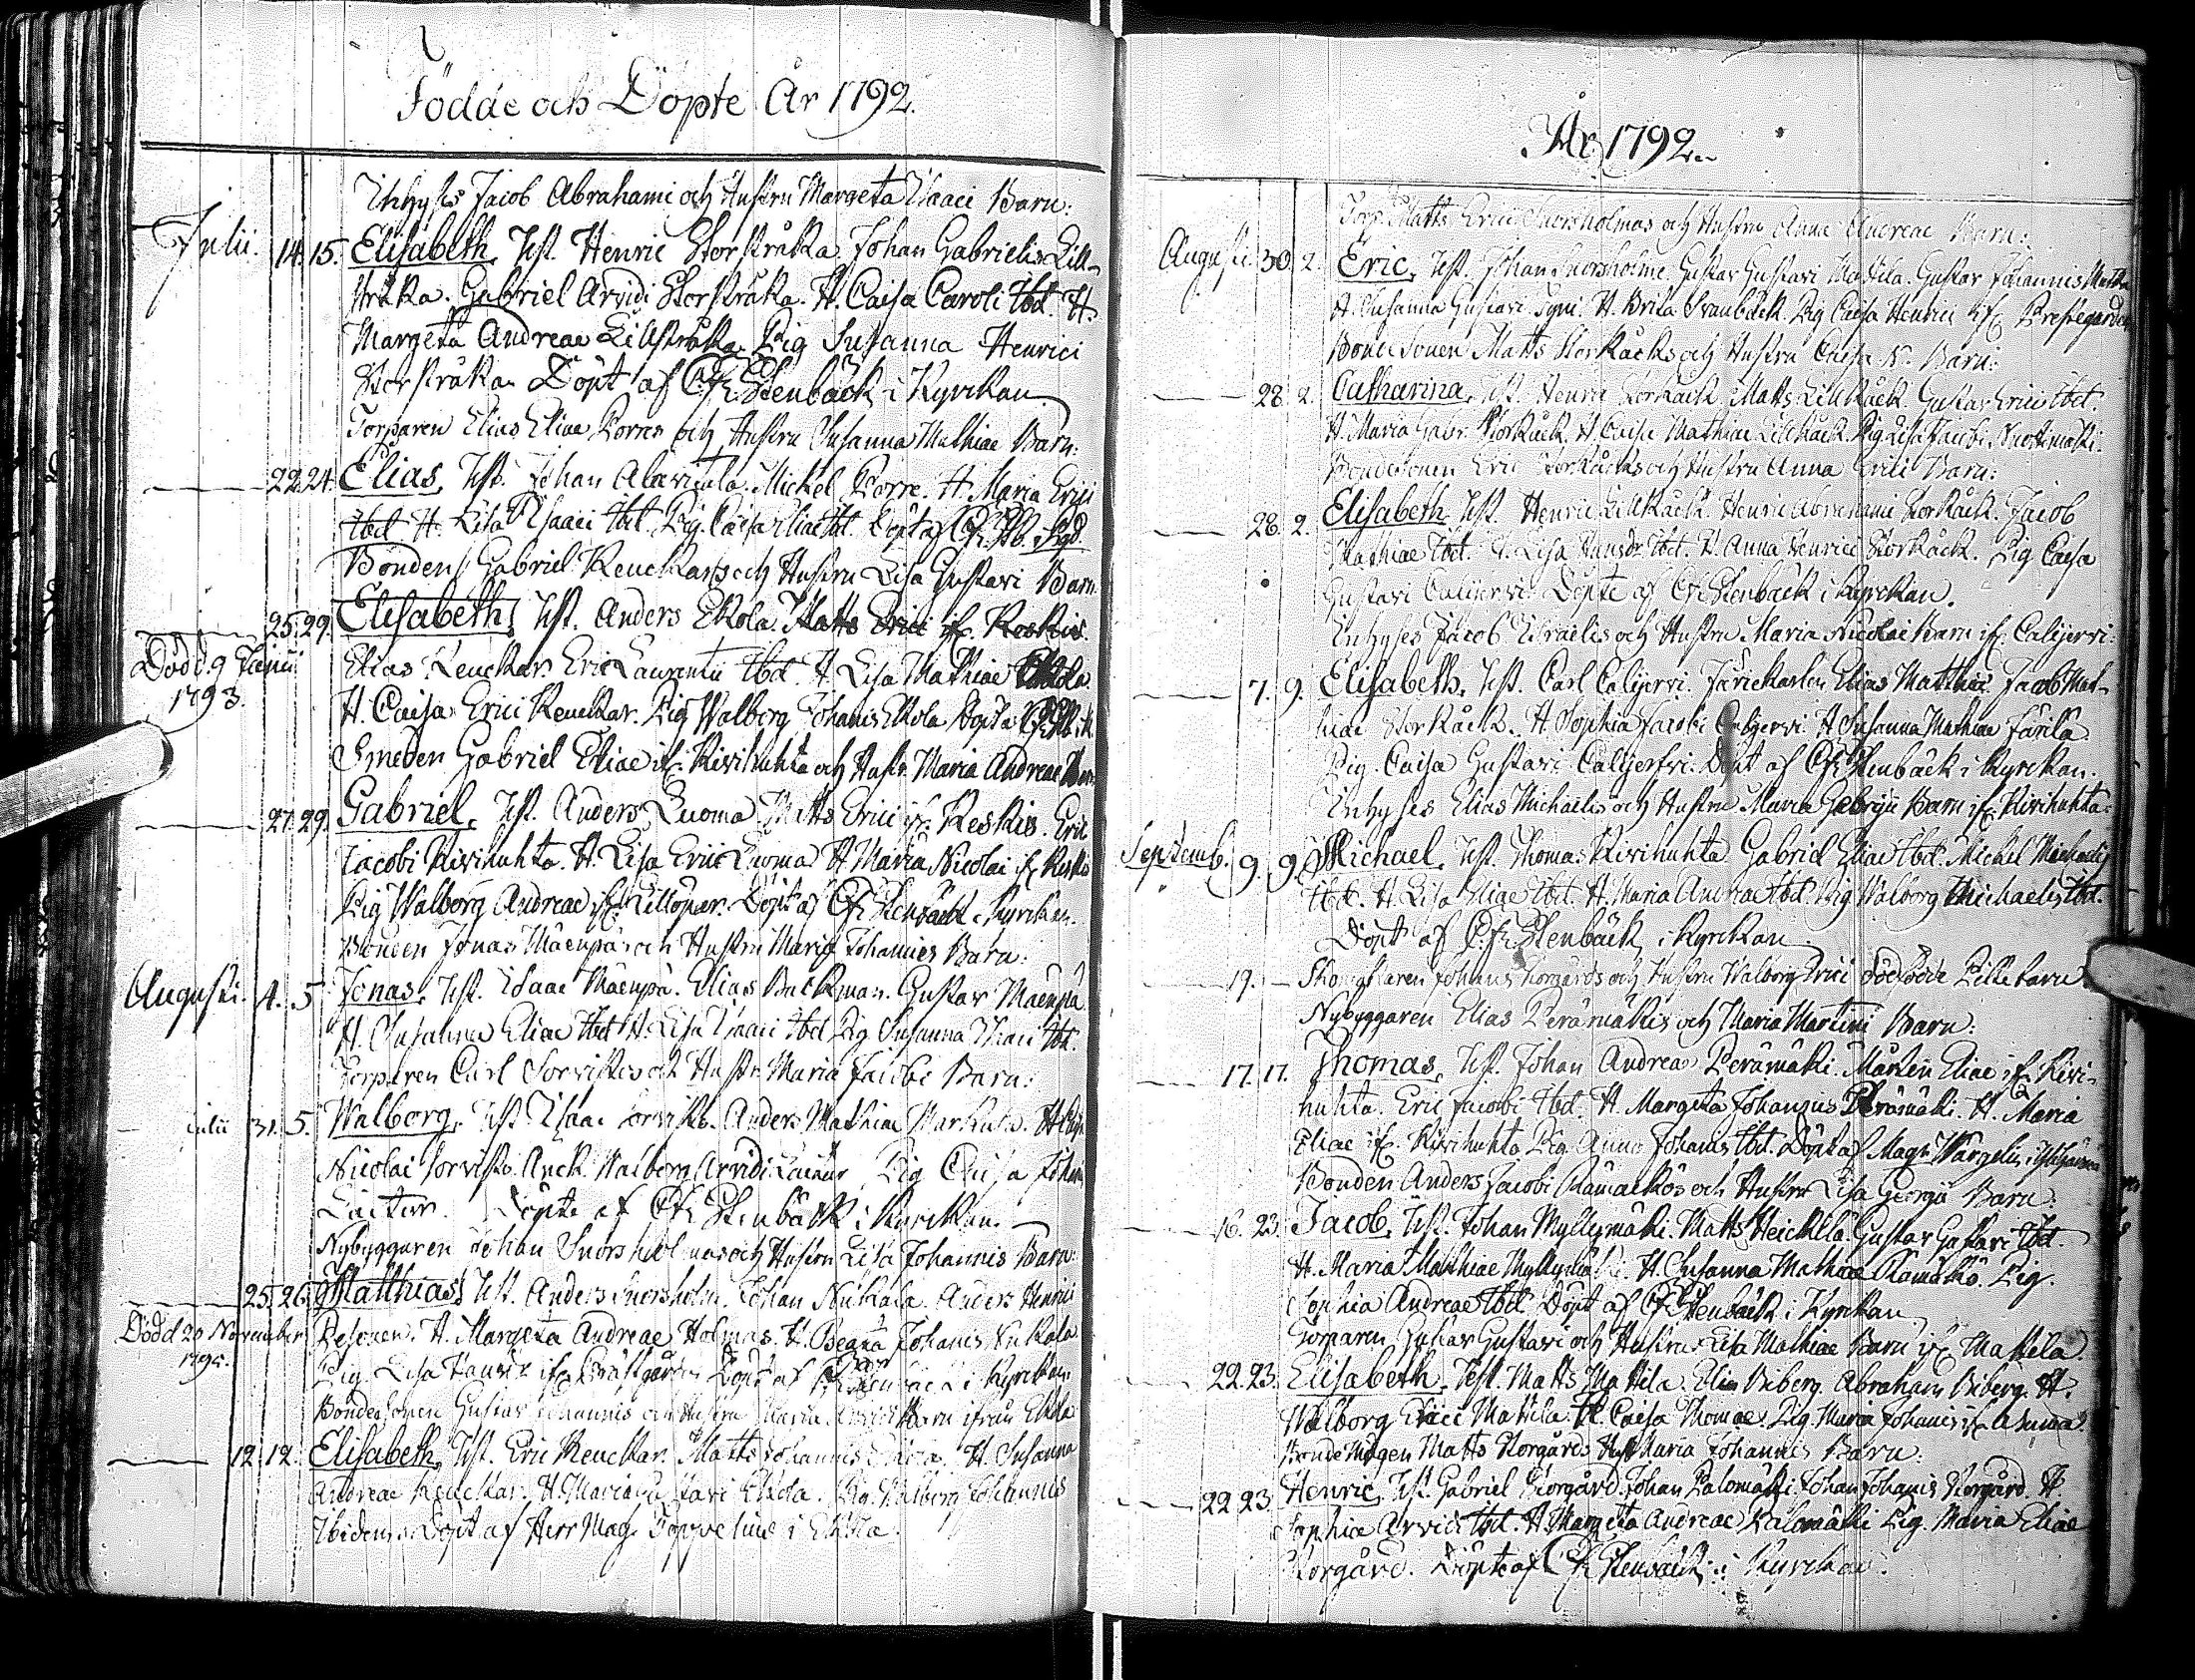 Födde och Döpte År 1792.
Inhyses Jacob Abrahami och Hustru Margeta Isaaci Barn:
Julii. 14. 15. Elisabeth, Test. Henric Storstråka. Johan Gabrielis Lill-
stråka. Gabriel Arvidi Storstråka. H. Caisa Caroli Ibd. H.
Margeta Andreae Lillstråka. Pig Susanna Henrici
Storstråka. Döpt af C. Fr. Stenbäck i Kyrckan.
Torparen Elias Eliae Porres och Hustru Susanna Mathiae Barn:
22. 24. Elias, Test. Johan Alavitala. Michel Porre. H. Maria Erici
Ibd. H. Lisa Isaaci Ibd. Pig. Caisa Eliae Ibd. Döpt af
Bonden Gabriel Renckars och Hustru Lisa Gustavi Barn.
25. 29. Elisabeth, Test. Anders Ekola. Matts Erici if. Keskis.
Död d. 9 Junii
1793.
Elias Renckar. Eric Laurentii Ibd. H. Lisa Mathiae Ekola.
H. Caisa Erici Renckar. Pig Walborg Johanis Ekola Döpt af
Smeden Gabriel Eliae if. Kivihuhta och Hustr. Maria Andreae Barn
27. 29. Gabriel, Test. Anders Luoma. Matts Erici if. Keskis. Eric
Jacobi Kivihuhta. H. Lisa Erici Luoma H. Maria Nicolai if. Keskis
Pig Walborg Andreae if. Lillöpar. Döpt af C. Fr. Stenbäck i Kyrckan.
Bonden Jonas Mäenpäs och Hustru Maria Johannis Barn:
Augusti. 4. 5. Jonas, Test. Isaac Mäenpä. Elias Backman. Gustav Mäenpä
H. Susanna Eliae Ibd. H. Lisa Isaaci Ibd. Pig Susanna Isaaci Ibd.
Torparen Carl Sorvistos och Hustr. Maria Jacobi Barn:
Julii 31. 5. Walborg, Test. Isaac Sorvisto. Anders Mathiae
Nicolai Sorvisto. Anck. Walborg Arvidi Pig Caisa
Döpte af C. Fr. Stenbäck i Kyrckan.
Nybyggaren Johan Snorsholmas och Hustru Lisa Johannis Barn:
25. 26. Matthias, Test. Anders Snorsholm. Johan Nukala. Anders Henrici
Död d 20 November
1795.
Pesonen. H. Margeta Andreae Holmas. H. Beata Johanis Nukala
Pig. Lisa Döpt af C. Fr. Stenbäck i Kyrckan.
Bondesonen Gustav Johannis och Hustru Maria Barn ifrån Ekola
12. 12. Elisabeth, Test. Eric Renckar. Matts Johannis Ekola. H. Susanna
Andreae Renckar. H. Maria Gustavi Ekola. Pig. Walborg Johannis
Ibidem. Döpt af Herr Mag. Toppelius i Ekola.
År 1792.
Torp. Matts Erici Snorsholmas och Hustru Anna Andreae Barn:
Augusti. 30. 2. Eric, Test. Johan Snorsholme. Gustav Gustavi Mattila. Gustav Johannis
H. Susanna Gustavi H. Brita Svanbäck. Pig Caisa Henrici if. Prestegården
Bondesonen Matts Storkåcks och Hustru Caisa N. Barn:
28. 2. Catharina, Test. Henric Storkåck Matts Lillkåck. Gustav Erici Ibd.
H. Maria Storkåck. H. Caisa Mathiae Lillkåck. Pig Lisa Jacobi
Bondesonen Eric Storkåcks och Hustru Anna Erici Barn:
28. 2. Elisabeth, Test. Henric Lillkåck. Henric Abrahami Storkåck. Jacob
Mathiae Ibd. H. Lisa Hansdr Ibd. H. Anna Henrici Storkåck. Pig Caisa
Gustavi Calijervi. Döpte af C. Fr. Stenbäck i Kyrckan.
Inhyses Jacob Israelis och Hustru Maria Nicolai Barn if. Calijervi.
7. 9. Elisabeth, Test. Carl Calijervi. Färiekarlen Elias Matthiae. Jacob Mat-
hiae Storkåck. H. Sophia Jacobi Calijervi. H. Susanna Mathiae Färila
Pig. Caisa Gustavi Calijervi. Döpt af C. Fr. Stenbäck i Kyrckan.
Inhyses Elias Michaelis och Hustru Maria Barn if. Kivihuhta:
Septemb. 9. 9. Michael, Test. Thomas Kivihuhta Gabriel Eliae Ibd. Michel Michaelis
Ibd. H. Lisa Eliae Ibd. H. Maria Andreae Ibd. Pig Walborg Michaelis Ibd.
Döpt af C. Fr. Stenbäck i Kyrckan.
19. – Johans Korgårds och Hustru Walborg Erici dödfödde
Nybyggaren Elias Perämäkis och Maria Martini Barn:
17. 17. Thomas, Test. Johan Andreae Perämäki. Mårten Eliae if. Kivi-
huhta. Eric Jacobi Ibd. H. Margeta Johannis Perämäki. H. Maria
Eliae if. Kivihuhta Pig. Anna Johanis Ibd. Döpt af Mag. Wargelin i
Bonden Anders Jacobi Rämäckös och Hustru Lisa Georgii Barn:
16. 23. Jacob, Test. Johan Myllymäki. Matts Heickilä. Gustav Gustavi Ibd.
H. Maria Mathiae Myllymäki. H. Susanna Mathiae Rämäkö. Pig.
Sophia Andreae Ibd. Döpt af C. Fr. Stenbäck i Kyrckan.
Torparen Gustav Gustavi och Hustru Lisa Mathiae Barn if. Mattila.
22. 23. Elisabeth, Test. Matts Mattila. Elias Biberg. Abraham Biberg. H.
Walborg Erici Mattila. H. Caisa Thomae. Pig. Maria Johanis if.
Bondemågen Matts Korgårds Hust Maria Johannis Barn:
22 23 Henric, Test. Gabriel Korgård. Johan Palomäki. Johan Johanis Korgård. H.
Sophia Arvidi Ibd. H. Margeta Andreae Palomäki Pig. Maria Eliae
Korgård. Döpte af C. Fr. Stenbäck i Kyrckan.